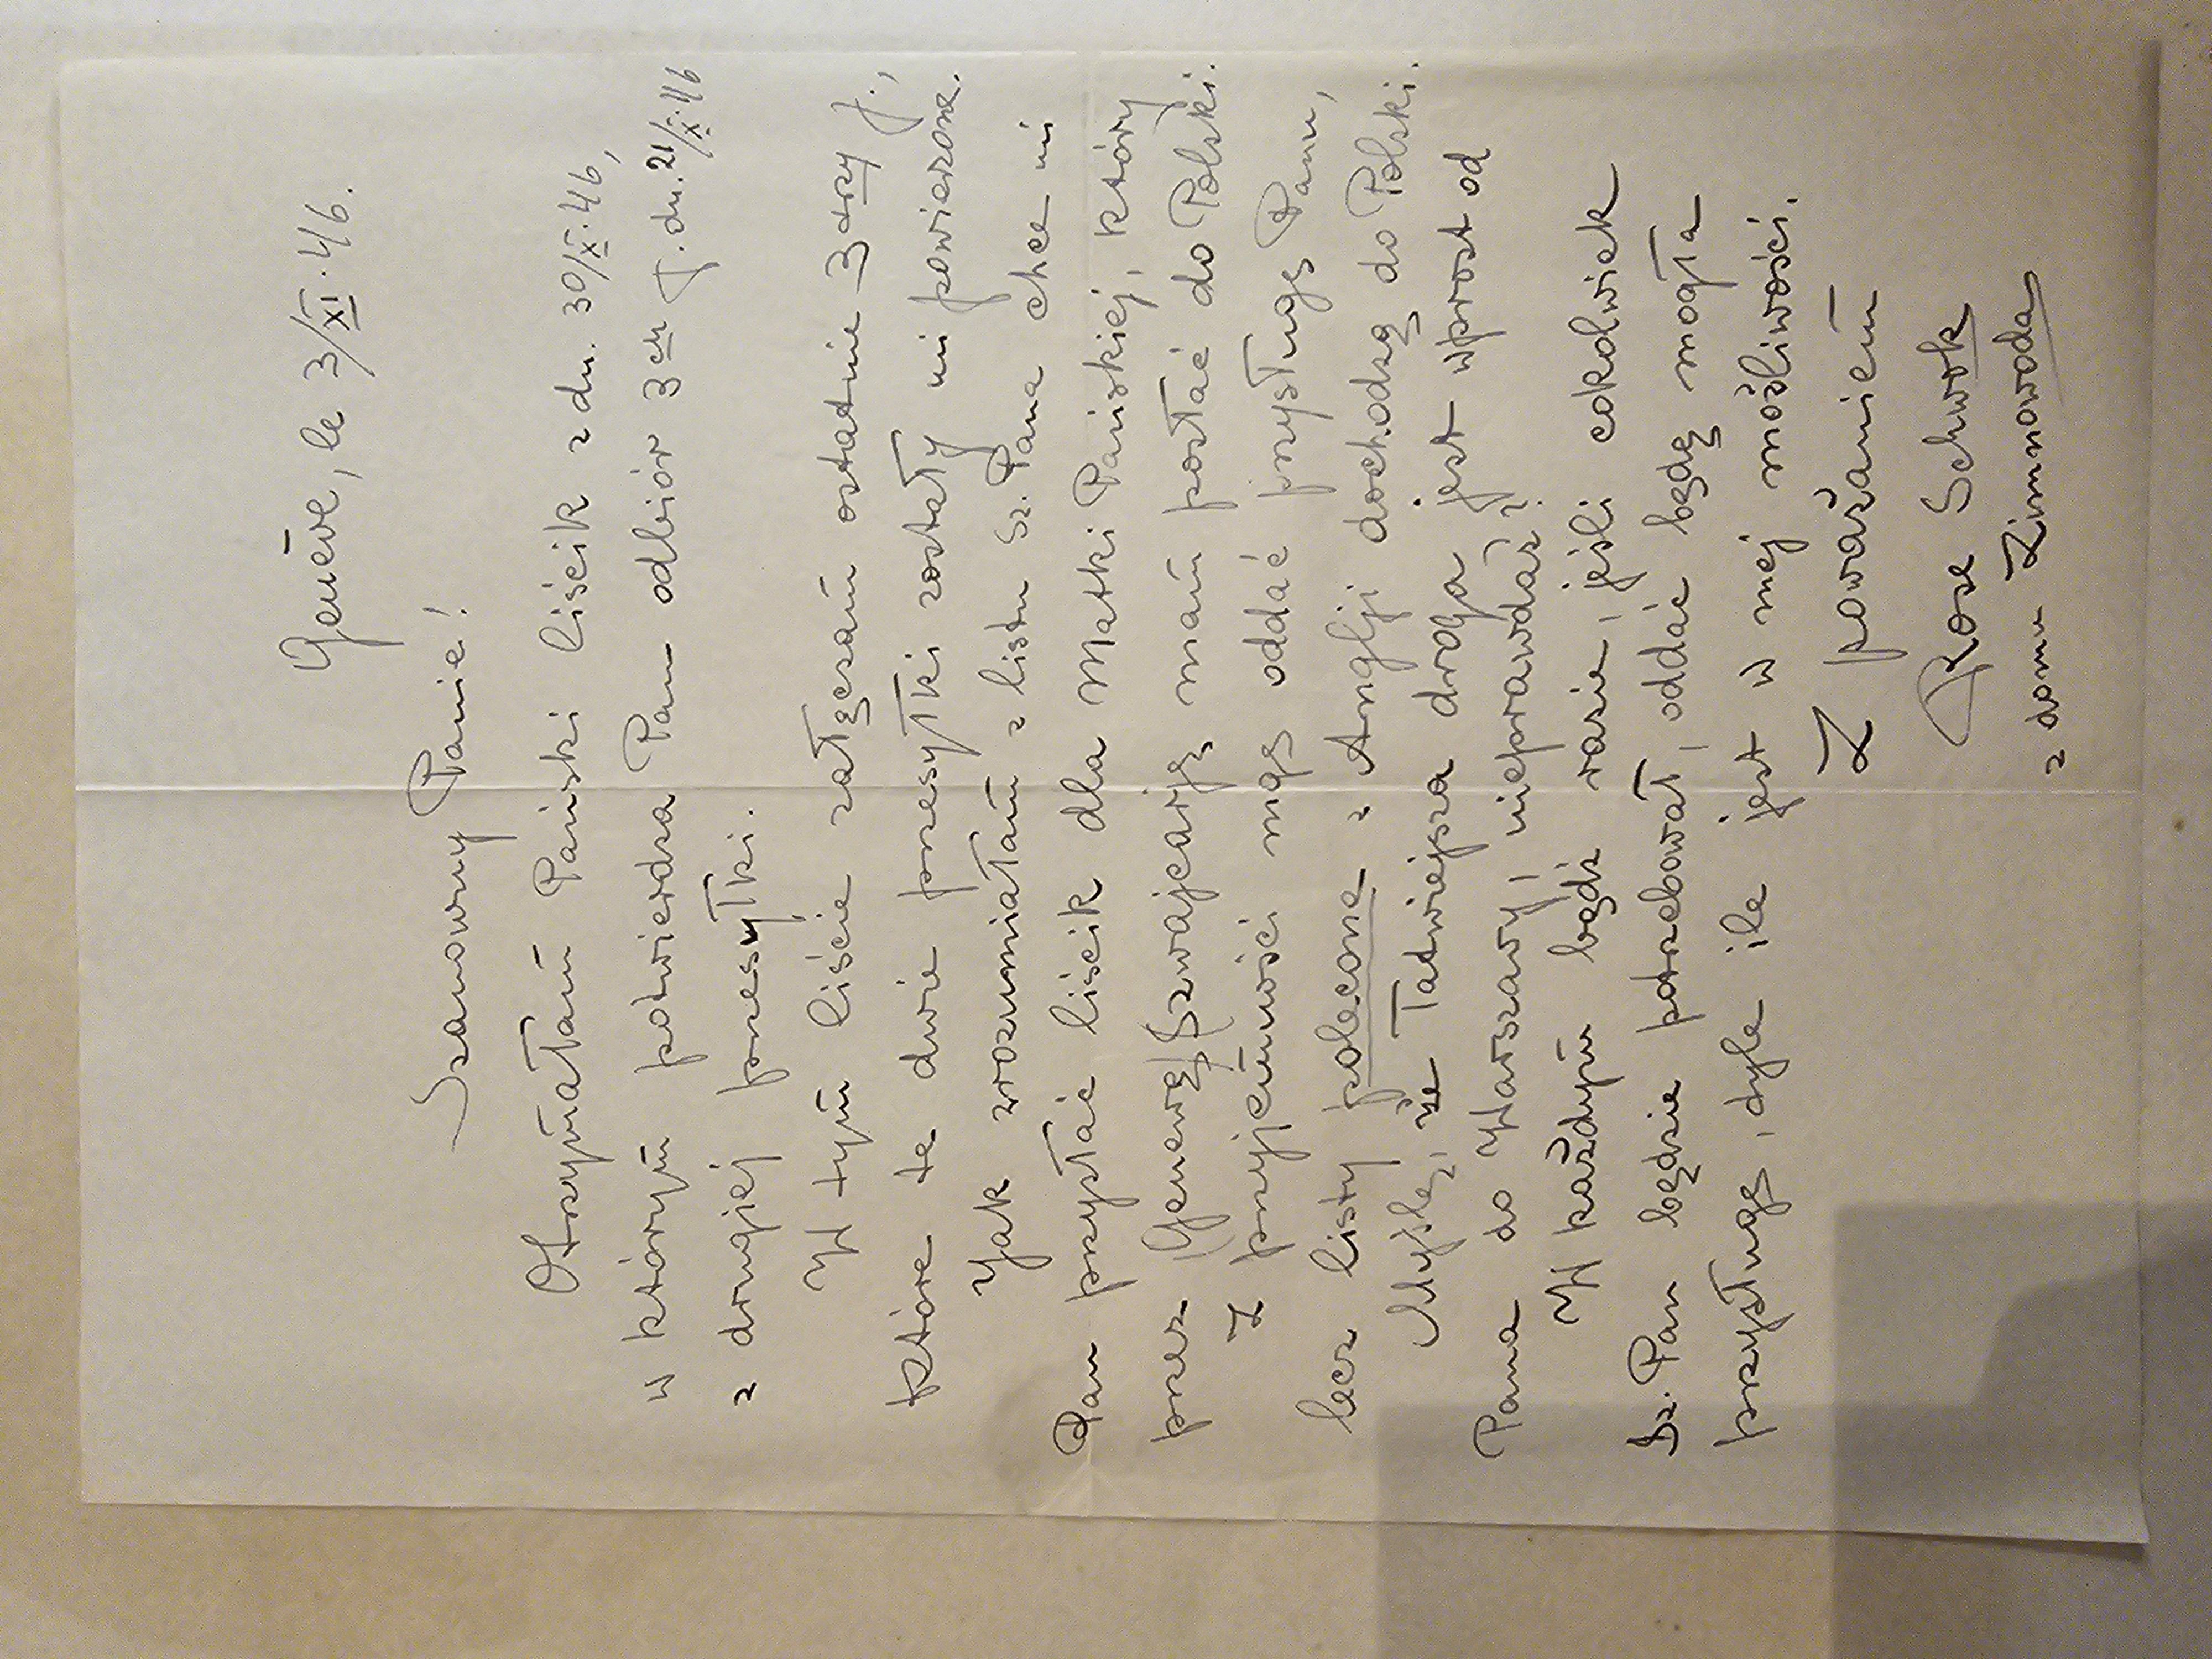 Genève, le 3/XI.46.
Szanowny Panie!
Otrzymałam Pański liścik z dn. 30/X.46,
w którym potwierdza Pan odbiór 3ch f. dn. 21/X.46
z drugiej przesyłki.
W tym liście załączam ostatnie 3 trzy f.,
które te dwie przesyłki zostały mi powierzone.
Jak zrozumiałam z listu Sz. Pana chce mi
Pan przysłać liścik dla Matki Pańskiej, który
przez Genewę/Szwajcarję, mam posłać do Polski.
Z przyjemności mogę oddać przysługę Panu,
lecz listy polecone z Anglji dochodzą do Polski.
Myślę, że łatwiejsza droga jest wprost od
Pana do Warszawy, nieprawdaż?
W każdym bądź razie, jeśli cokolwiek
Sz. Pan będzie potrzebował, oddać będę mogła
przysługę, tyle ile jest w mej możliwości.
Z poważaniem
Rose Schwok
z domu Zimnowoda